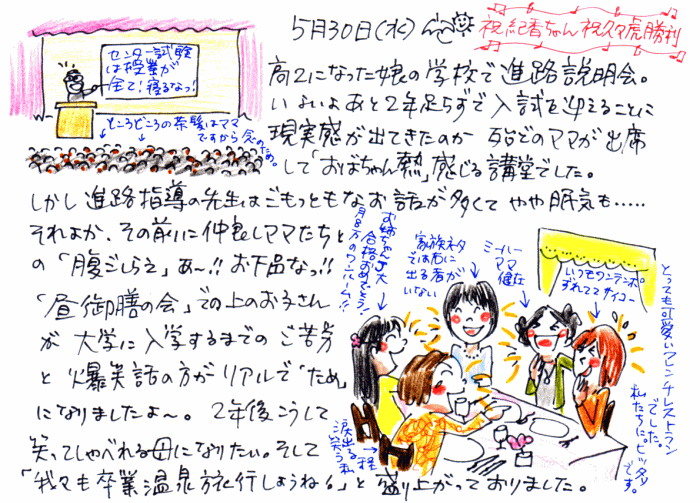 5月30日(水)
祝紀香ちゃん 祝久々虎勝利
センター試験
は授業が
全て!寝るなっ!
ところどころの茶髪はママ
ですから 念のため。
高2になった娘の学校で進路説明会。
いよいよあと2年足らずで入試を迎えることに
現実感が出てきたのか ほとんどのママが出席
して「おばちゃん熱」感じる講堂でした。
しかし進路指導の先生はごもっともなお話が多くて やや眠気も……
それよか、その前に仲良しママたちと
の「腹ごしらえ」あ〜!!お下品なっ!!
「昼御膳の会」での上のお子さん
が 大学に入学するまでの ご苦労
と 爆笑話の方がリアルで「ため」
になりましたよ〜。 2年後こうして
笑ってしゃべれる母になりたい。そして
「我々も卒業温泉旅行しようね!。」と 盛り上がっておりました。
お姉ちゃん
合格おめでとう!
家族ネタ
では右に
出る者が
いない
ミーハー
ママ
健在
いつもワンテンポ。
ずれててサイコー
とっても可愛いフレンチレストラン
でした。
私たちにピッタリ
です。
涙出る程
笑う私